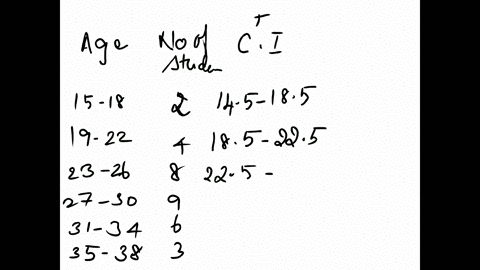 Age No of Studen C.I
15-18 2 14.5-18.5
19-22 4 18.5-22.5
23-26 8 22.5 -
27-30 9
31-34 6
35-38 3